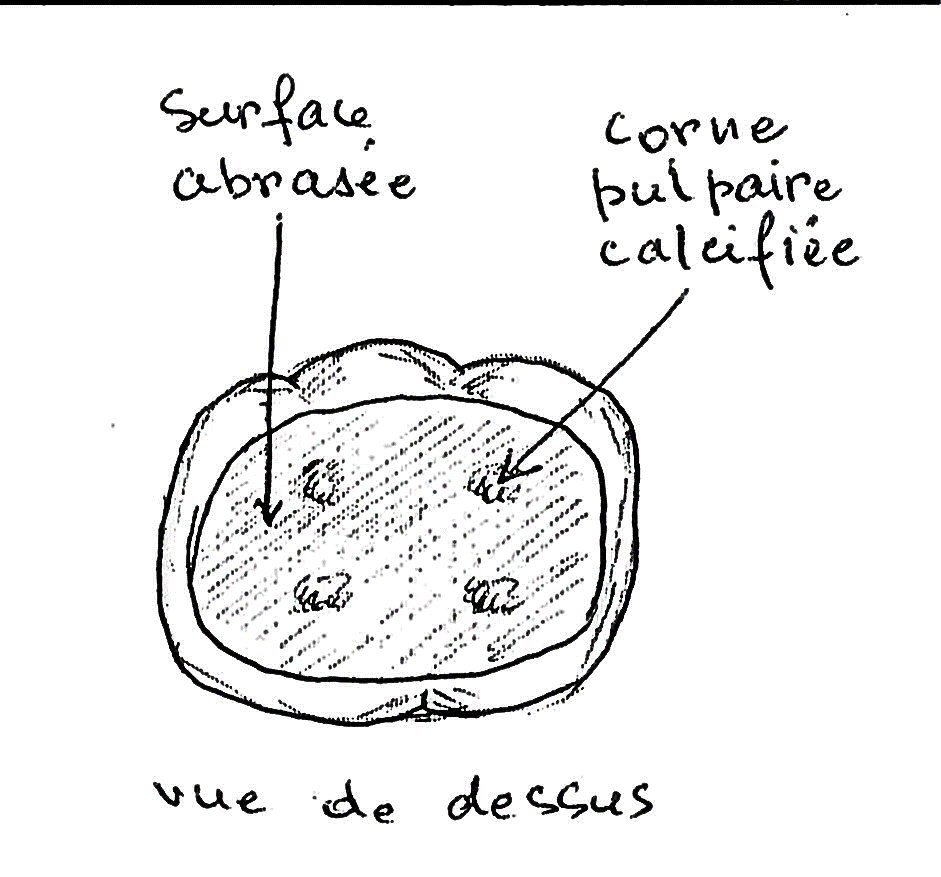 Surface
abrasée
corne
pulpaire
calcifiée
vue de dessus